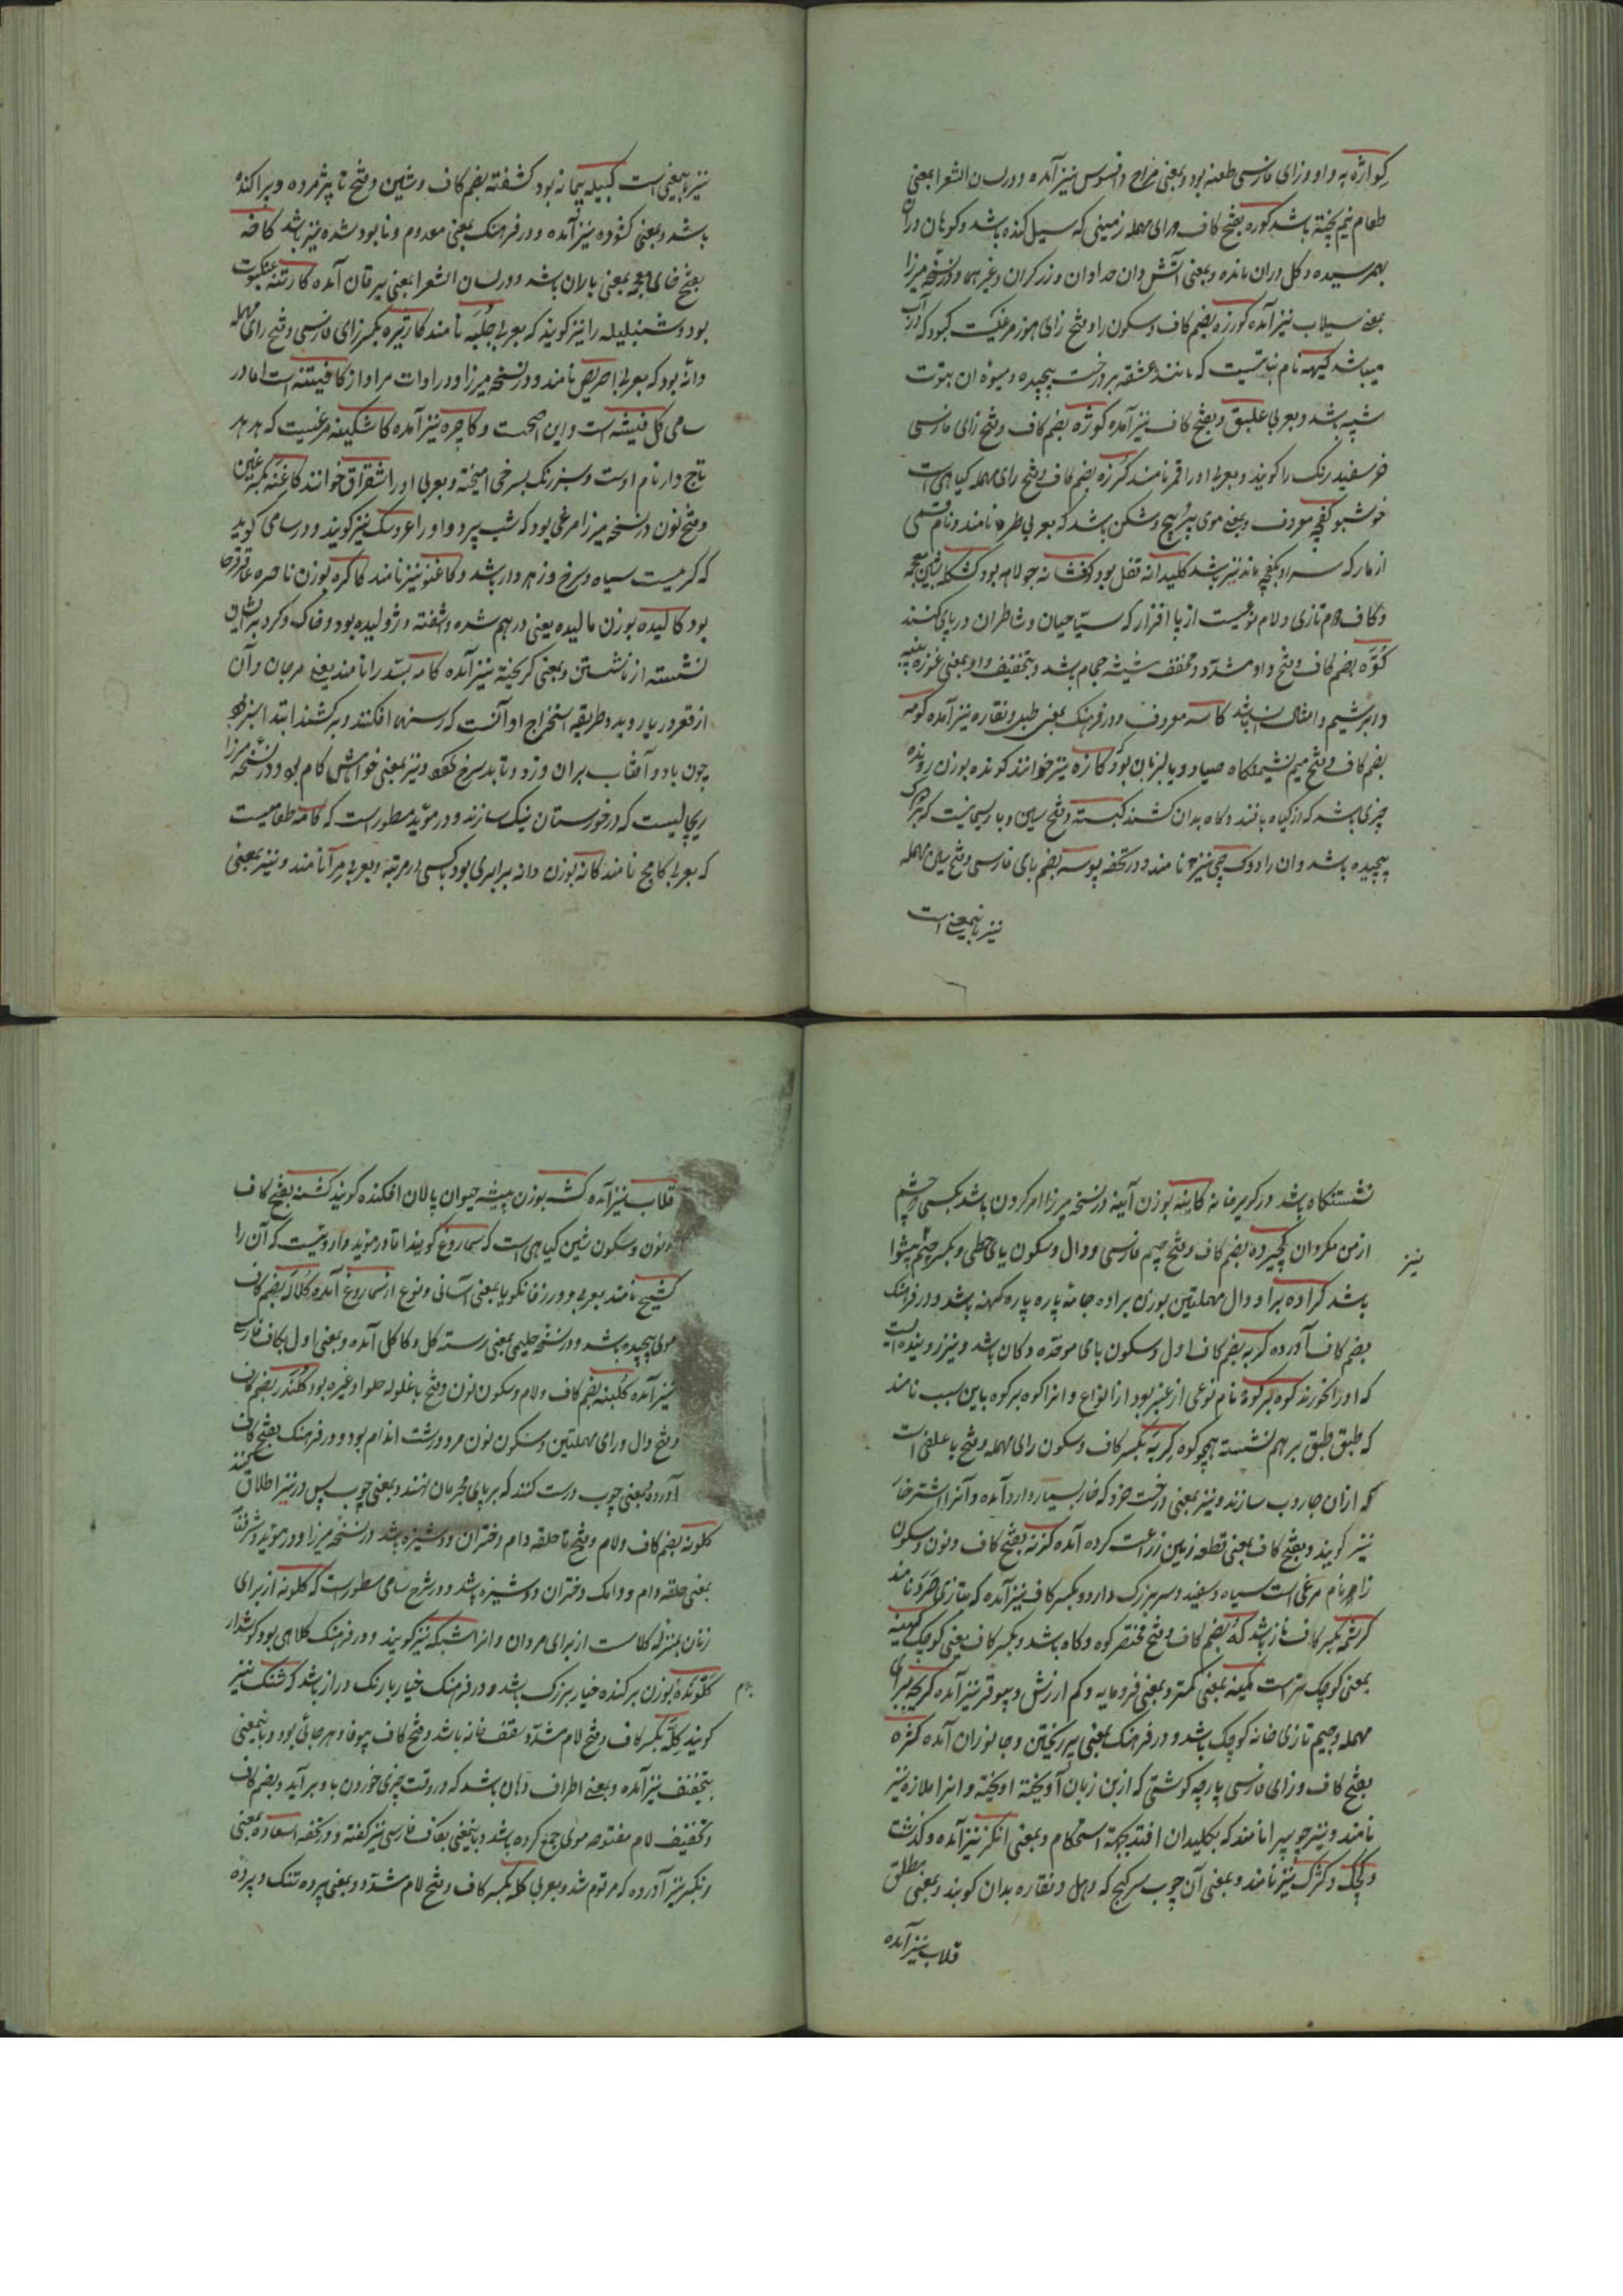 کواژه به واو و زای فارسی طعنه بود و بمعنی مزاح و افسوس نیز آمده و در لسان الشعرا بمعنی
طعام نیم پخته باشد کوره بفتح کاف و رای مهمله زمینی که سیل کنده باشد و کوهان دران
بهمرسیده و کل دران مانده و بمعنی آتش دان حدادان و زرکران و غیرهما و در نسخه میرزا
بمعنی سیلاب نیز آمده کورزه بضم کاف و سکون را و فتح زای هوز مرغیست کبود که در آب
میباشد کیهه نام نباتیست که مانند عشقه بر درخت پیچیده و میوهٔ ان بتوت
شبیه باشد و بعربی علیق و بفتح کاف نیز آمده کوژه بضم کاف و فتح زای فارسی
خر سفید رنک را کویند و بعربی او را اقمر نامند کرزه بضم کاف و فتح رای مهمله کیاهی است
خوشبو کفچه معروف و بمعنی موی پر پیچ و شکن باشد که بعربی طره نامند و نام قسمی
از مار که سر او بکفچه ماند نیز باشد کلیدانه قفل بود کفشانه جولاهه بود کشکله بشین معجمه
و کاف دوم تازی و لام نوعیست از پا افزار که سیاحیان و شاطران در پای کنند
کوه بضم کاف و فتح واو مشدد و مخفف شیشه حجام باشد و بتخفیف واو بمعنی غوزه پنبه
و ابریشم و امثال ان باشد کاسه معروف و در فرهنک بمعنی طبل و نقاره نیز آمده کومه
بضم کاف و فتح میم نشیمنکاه صیاد و پالیزبان بود کازه نیز خوانند کونده بوزن رونده
چیزی باشد که از کیاه بافند و کاه بدان کشند کبسته و فتح سین و با ریسمانیست که بر دوک
پیچیده باشد و ان را دوک چی نیز نامند و در تحفه پوسه بضم بای فارسی و فتح سین مهمله
نیز باینمعنی است
نیز باینمعنی است کبیله پیمانه بود کشفته بضم کاف و شین و فتح تا پژمرده و پراکنده
باشد و بمعنی کشوده نیز آمده و در فرهنک بمعنی معدوم و نابود شده نیز باشد کاخه
بفتح خای معجمه بمعنی باران باشد و در لسان الشعرا بمعنی یرقان آمده کارتنه عنکبوت
بود و شنبلیله را نیز کویند که بعربی حلبه نامند کاژیره بکسر زای فارسی و فتح رای مهمله
دانه بود که بعربی احریض نامند و در نسخه میرزا و در ادات مرادف کافیشه است اما در
سامی کل فیشه است و این اصحست و کاجره نیز آمده کاشکینه مرغیست که هدهد
تاج دار نام اوست و سبز رنک بسرخی امیخته و بعربی او را شقراق خوانند کاغنه بکسر غین
و فتح نون در نسخه میرزا مرغی بود که شب پرد و او را عروسک نیز کویند و در سامی کوید
که کرمیست سیاه و سرخ و زهردار باشد و کاغنو نیز نامند کاکره بوزن ناصره عاقرقرحا
بود کالیده بوزن مالیده یعنی درهم شده و آشفته و ژولیده بود و خاک و کرد بر ایشان
نشسته از نشستن و بمعنی کریخته نیز آمده کامه بسد را نامند یعنی مرجان و آن
از قعر دریا روید و طریقه استخراج او آنست که رسنها افکنند و بر کشند ابتدا سبز بود
چون باد و آفتاب بران وزد و تابد سرخ کردد و نیز بمعنی خواهش کام بود و در نسخه میرزا
ریچالیست که در خوزستان نیک سازند و در موید مسطورست که کامه طعامیست
که بعربی کامخ نامند کانه بوزن دانه برابری بود بکسی در مرتبه و بعربی مراٰ نامند و نیز بمعنی
نشستنکاه باشد در کریر خانه کاینه بوزن آیینه در نسخه میرزا امر کردن باشد بکسی چشم
از من مکردان کچیده بضم کاف و فتح جیم فارسی و دال و سکون یای حطی و بکسر جیم پیشوا نیز
باشد کراده برا و دال مهملتین بوزن براده جامهٔ پاره پاره کهنه باشد و در فرهنک
بضم کاف آورده کربه بضم کاف اول و سکون بای موحده دکان باشد و نیز رویندهٔ است
که او را خورند کوه بر کوه نام نوعی از عنبر بود از انواع و انرا کوه بر کوه باین سبب نامند
که طبق طبق بر هم نشسته همچو کوه کربه بکسر کاف و سکون رای مهمله و فتح با علفی است
که ازان جاروب سازند و نیز بمعنی درخت خرد که خار بسیار دارد آمده و آنرا اشترخار
نیز کویند و بفتح کاف بمعنی قطعه زمین زراعت کرده آمده کزنه بفتح کاف و نون و سکون
زا هم نام مرغی است سیاه و سفید و سر بزرک دارد و بکسر کاف نیز آمده که بتازی صرد نامند
کرشمه بکسر کاف ناز باشد که بضم کاف و فتح مختصر کوه و کاه باشد و بکسر کاف یعنی کوچک کهینه
بمعنی کوچک تر است کمینه بمعنی کمتر و بمعنی فرومایه و کم ارزش و بیوقر نیز آمده کریچه برای
مهمله و جیم تازی خانه کوچک باشد و در فرهنک بمعنی پر ریختن و جانوران آمده کژه
بفتح کاف و زای فارسی پارچه کوشتی که از بن زبان آویخته اویخته و انرا ملازه نیز
نامند و نیز چوبی را نامند که بکلیدان افتد بجهة استحکام و بمعنی انکژ نیز آمده و کذشت
و کجک و کژک نیز نامند و بمعنی آن چوب سر کج که دهل و نقاره بدان کوبند و بمعنی مطلق
قلاب نیز آمده
قلاب نیز آمده کشه بوزن پیشه حیوان پالان افکنده کویند کشنه بفتح کاف
و نون و سکون شین کیاهی است که سماروغ کویند اما در موید دارویست که آن را
کشنج نامند بعربی و در زفانکویا بمعنی آسانی و نوع از سماروغ آمده کلاله بضم کاف
موی پیچیده باشد و در نسخه حلیمی بمعنی رسته کل و کاکل آمده و بمعنی اول بکاف فارسی
نیز آمده کلنبه بضم کاف و لام و سکون نون و فتح با غلوله حلوا و غیره بود کلندره بضم کاف
و فتح دال و رای مهملتین و سکون نون مرد درشت اندام بود و در فرهنک بفتح کاف
آورده بمعنی چوب درست کنند که بر پای مجرمان نهند و بمعنی چوب پس در نیز اطلاق کنند
کلوته بضم کاف و لام و فتح تا حلقه دام دختران دوشیزه باشد در نسخه میرزا و در موید و شرفنامه
بمعنی حلقه دام و دامک دختران دوشیزه باشد و در شرح سامی مسطورست که کلوته از برای
زنان بمنزله کلاه است از برای مردان و انرا شبکه نیز کویند و در فرهنک کلاهی بود کوشدار
کلونده بوزن برکنده خیار بزرک باشد و در فرهنک خیار بارنک دراز باشد که شنک نیز
کویند کله بکسر کاف و فتح لام مشدد سقف خانه باشد و فتح کاف بیوفا و هرجائی بود و باینمعنی
بتخفیف نیز آمده و بمعنی اطراف دهان باشد که در وقت چیزی خوردن با و برآید و بضم کاف
و تخفیف لام مفتوحه موی جمع کرده باشد و باینمعنی بکاف فارسی نیز کفته و در تحفه السعاده بمعنی
و بکسر نیز آورده که مرقوم شد و بعربی کله بکسر کاف و فتح لام مشدد و بمعنی پرده تنک و پرده